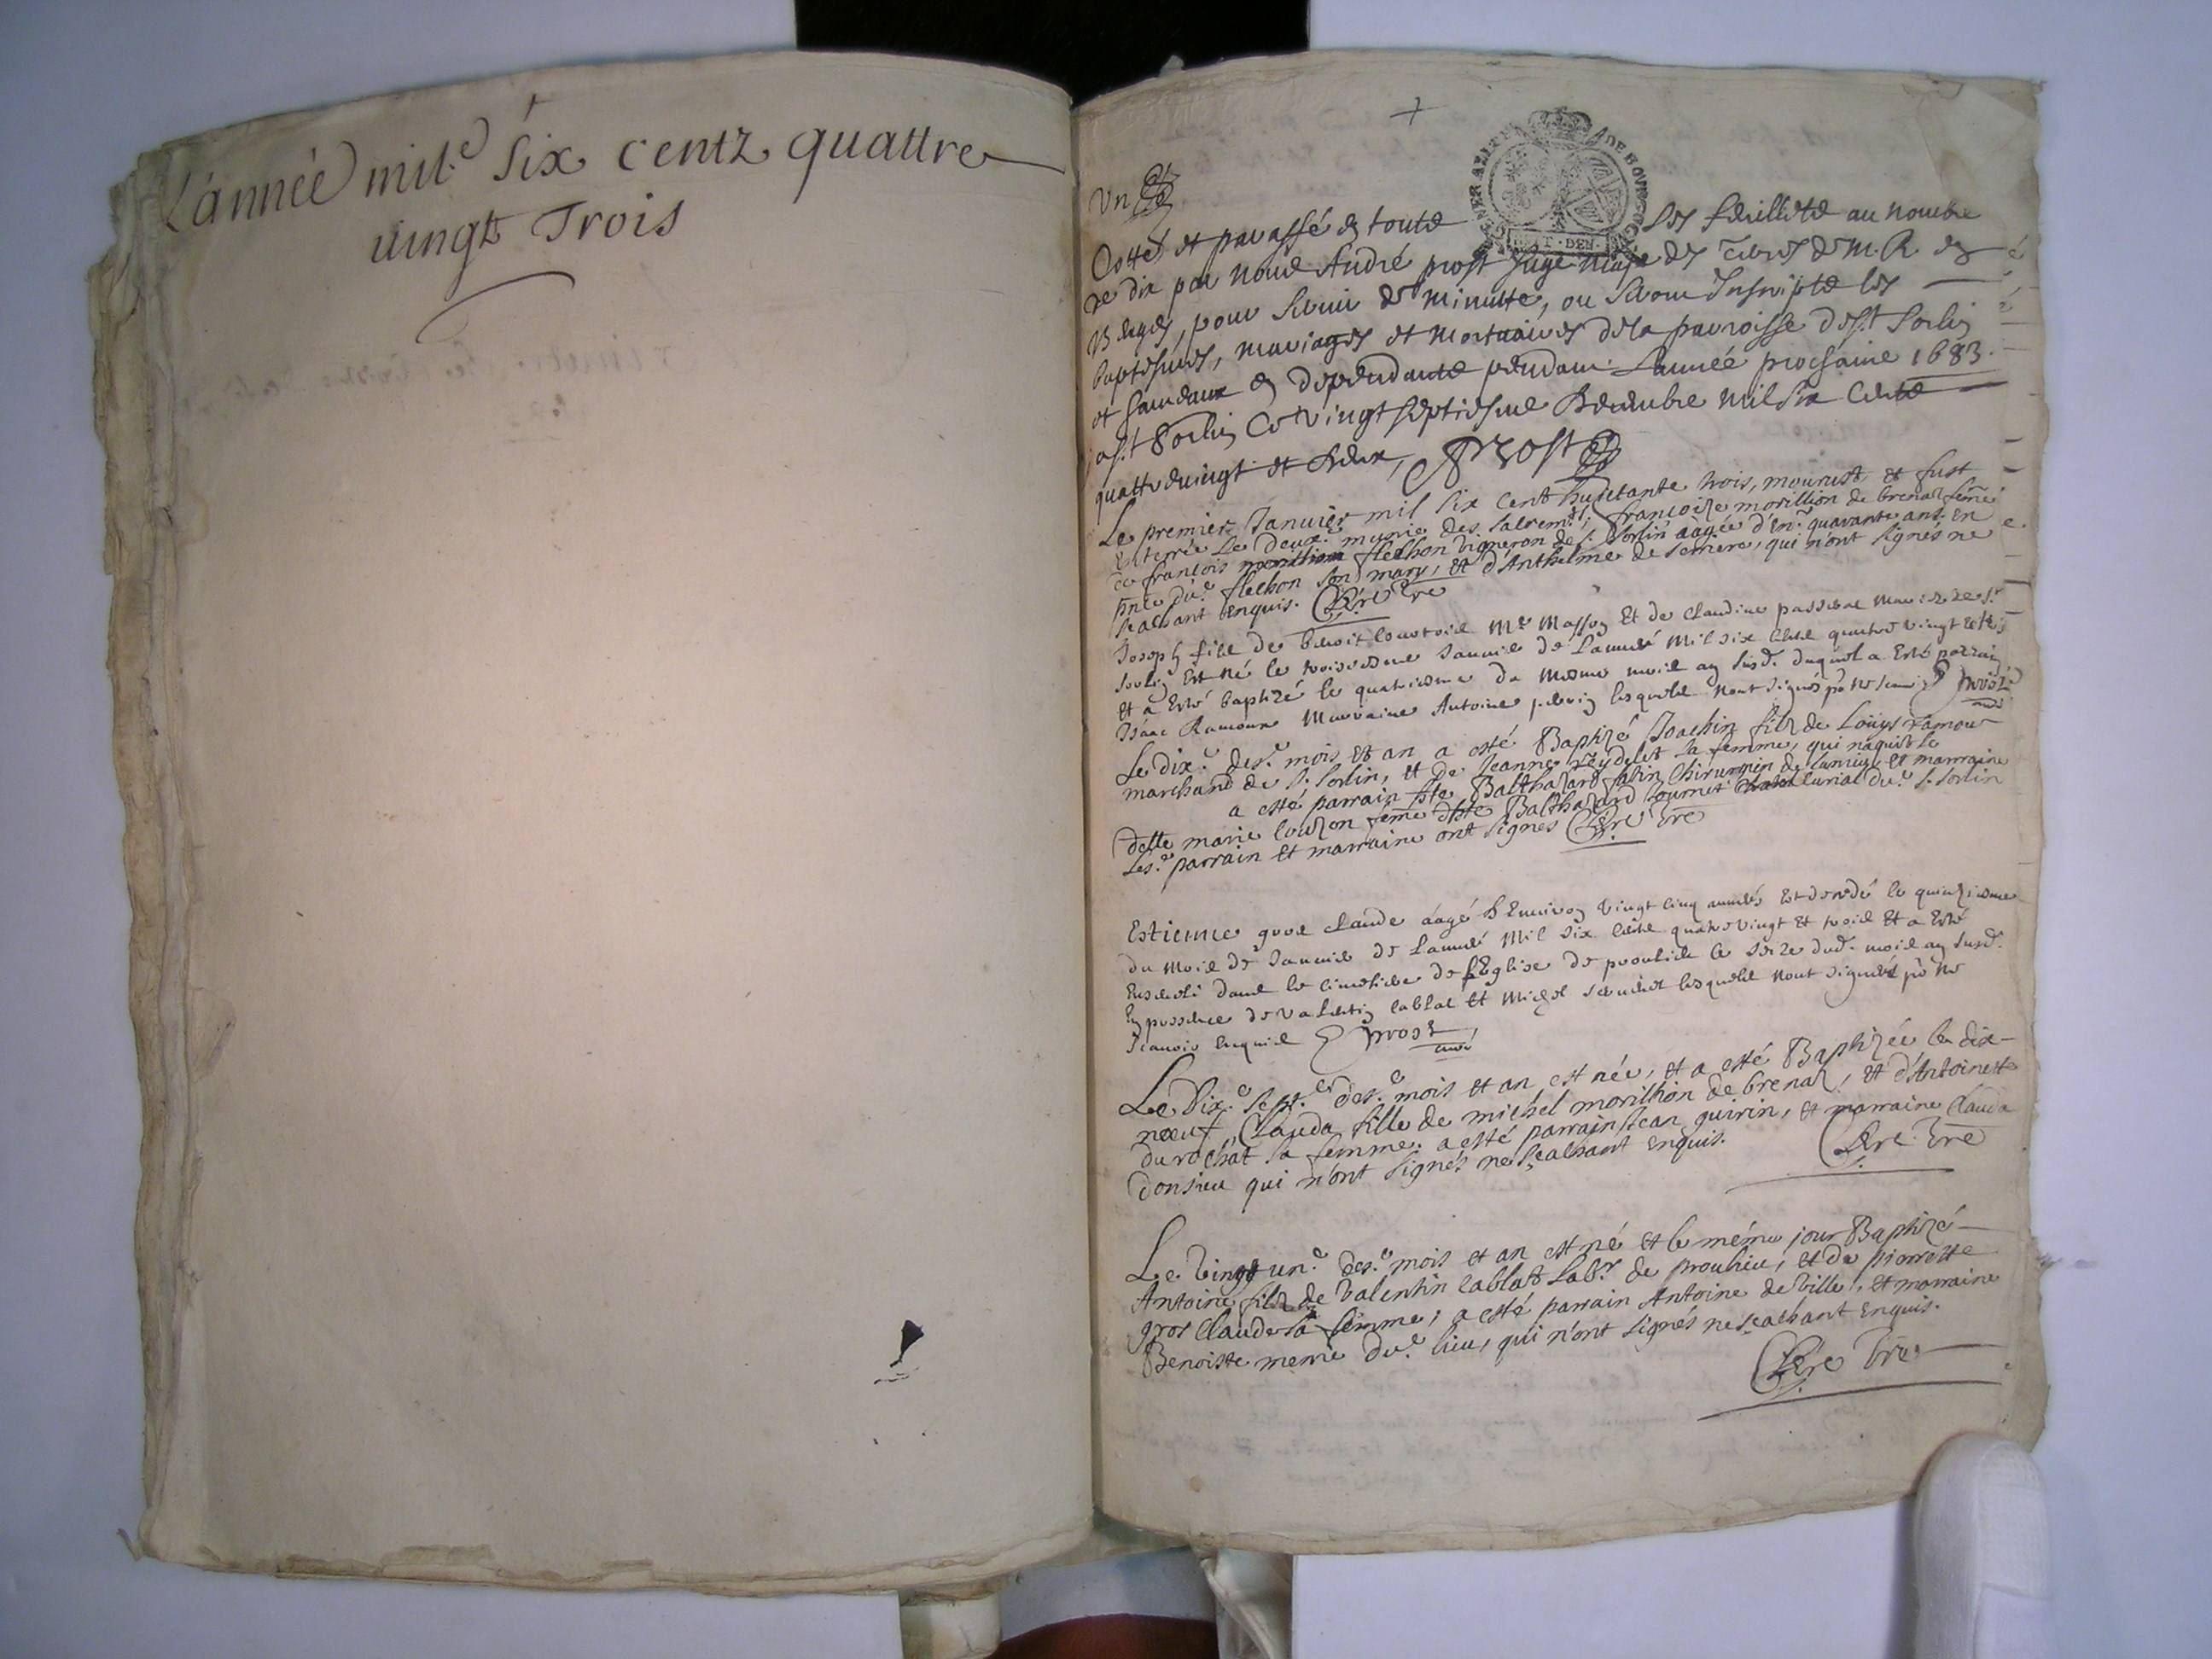 L'année mil six centz quattre
vingtz Trois
Un
Cotté et paraffé en toutes les feuilletz au nombre
de dix par nous André prost Juge maje des terres de M. R. en
Bugey, pour servir de minutte, ou seront Inscriptz les
baptesmes, mariages et mortuaires de la parroisse de S.t Sorlin
et hameaux en dependantz pendant L'année prochaine 1683.
a S.t Sorlin Ce vingt septiesme Decembre mil six Centz
quattrevingt et deux, Prost
Le premier Janvier mil six cent huictante trois, mourust, et fust
Enterrée Le deux.e munie des sacrem.ts, francoise morillion de brenaz feme
de francois flechon vigneron de S. Sorlin aagée d'en.n quarante ans. En
pnce du.e flechon son mary, et d'Anthelme de semere, qui n'ont signés ne
sçachant enquis.
Joseph filz de benoit Courtois M.e Masson Et de Claudine
Sorlin Est né le troisiesme Janvier de L'année Mil six Centz quatre vingt et trois
Et a Esté baptizé le quatriesme du mesme mois an susd. duquel a Esté parrain
Isaac Ramoux Marraine Antoine lesquelz n'ont signés pò ne scavoir Prost
curé
Le dix.e des.e mois et an a esté Baptizé Joachin filz de Loüys ramoux
marchand de S. Sorlin, et de Jeanne Reydelet sa femme, qui naquist Le
a esté parrain Balthazard fabin Chirurgien de Lanieu, et marraine
delle marie louzon feme Balthazard tournier curial du.e S. Sorlin
Les.e parrain et marraine ont signes
Estienne gros claude aagé d'Environ vingt cinq années Est decedé le quinziesme
du mois de Janvier de L'année Mil six Centz quatre vingt Et trois Et a Esté
Ensevely dans le cimetiere de l'Eglise de proulieu le seize dud. mois an susd.
En presence de valentin cablat Et Michel lesquelz n'ont signés pò ne
scavoir Enquis Prost
curé
Le Dix.e sept.e des.e mois et an est née, et a esté Baptizée le dix-
neuf, Clauda fille de michel morillion de brenaz, et d'Antoinette
durochat sa femme. a esté parrain Jean guirin, et marraine Clauda
donsieu qui n'ont signés ne sçachant Enquis.
Le vingt un.e des.e mois et an est né et le méme jour Baptizé
Antoine filz de Valentin cablat Lab.r de proulieu, et de pierrette
gros Claude sa femme, a esté parrain Antoine de ville, et marraine
Benoiste merie du.e lieu, qui n'ont signés ne sçachant Enquis.